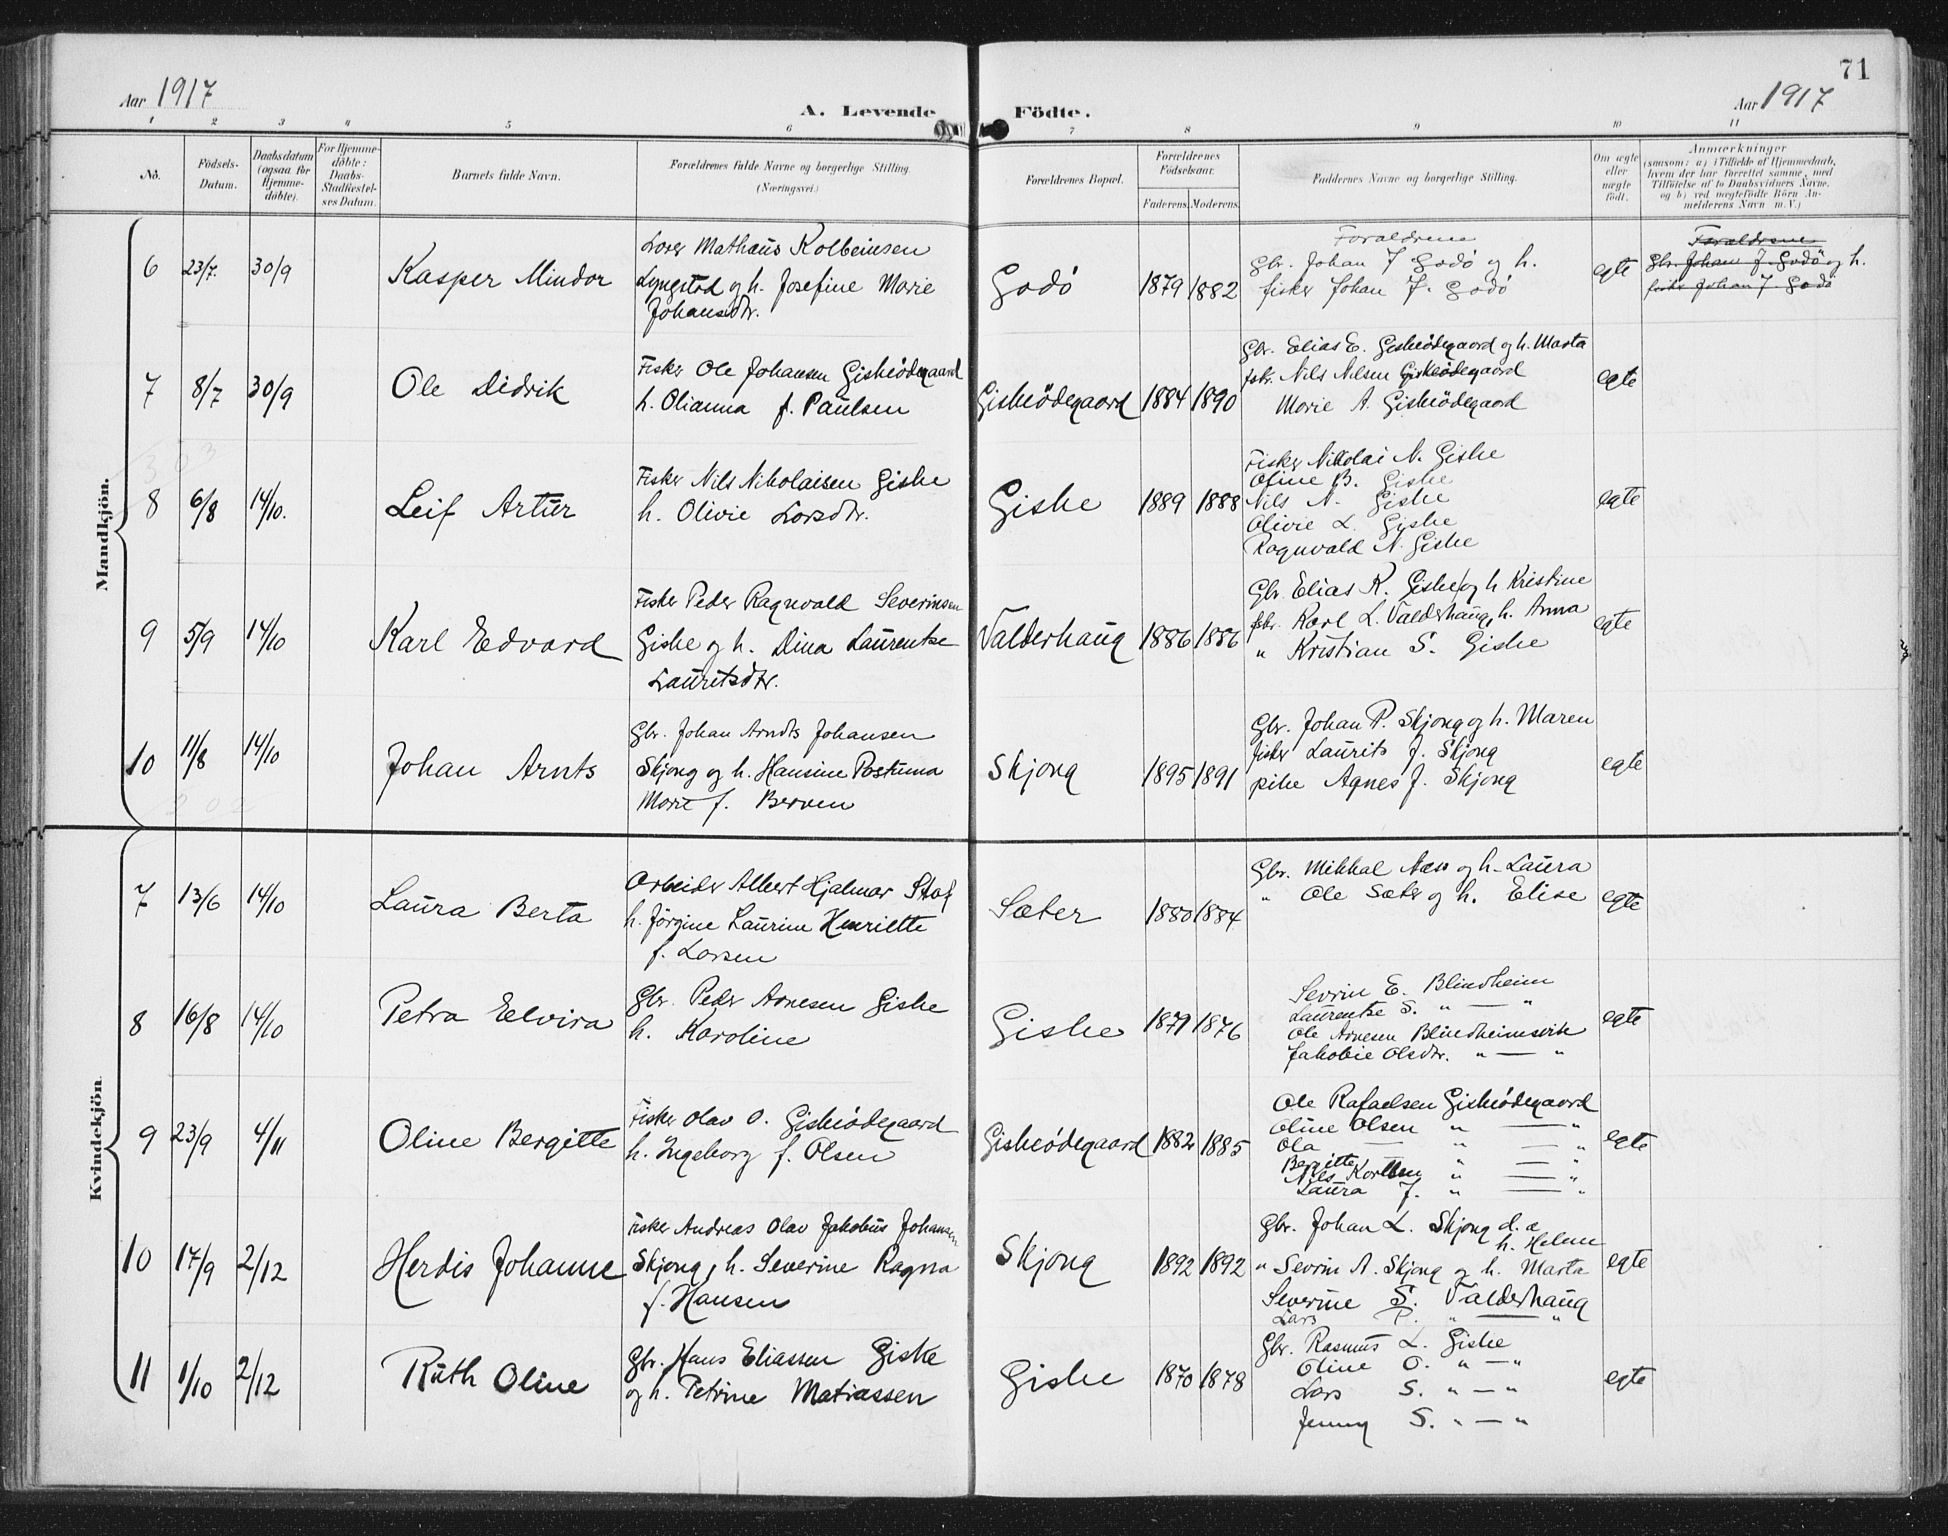 71
Aar 1917
A. Levende Födte.
Aar 1917
1 2 3 4 5 6 7 8 9 10 11
No.
Födsels-
Datum.
Daabsdatum
(ogsaa for
Hjemme-
döbte).
For Hjemme-
döbte:
Daabs-
Stadfæstel-
ses Datum.
Barnets fulde Navn.
Forældrenes fulde Navne og borgerlige Stilling.
(Næringsvei.)
Forældrenes Bopæl.
Forældrenes
Födselsaar.
Faderens. Moderens.
Faddernes Navne og borgerlige Stilling.
Om ægte
eller
uægte
født.
Anmærkninger
(saasom: a) i Tilfælde af Hjemmedaab,
hvem der har forrettet samme, med
Tilföielse af to Daabsvidners Navne.
og b) ved uægtefödte Börn An-
melderens Navn m. V.)
Mandkjön.
6 23/7. 30/9
Kasper Mindor
Lars Mathäus Kolbeinsen
Lyngstad og h. Josefine Marie
Johansdtr.
Godö
1879 1882
Foraldrene
Gbr. Johan J Godö og h.
fisker Johan J. Godö
egte
Foraldrene
Gbr. Johan J. Godö og h.
fisker Johan J. Godö
7 8/7 30/9
Ole Didrik
Fisker Ole Johansen Giskeödegaard
h. Olianna f. Paulsen
Giskeödegaard
1884 1890
Gbr. Elias E. Giskeödegaard og h. Marta
fskr. Nils Nilsen Giskeödegaard
Marie A. Giskeödegaard
egte
8 6/8 14/10.
Leif Artur
Fisker Nils Nikolaisen Giske
h. Olivie Larsdtr.
Giske
1889 1888
Fisker Nikolai N. Giske
Oline B. Giske
Nils N. Giske
Olivie L. Giske
Ragnvald N. Giske
egte
9 5/9 14/10
Karl Edvard
Fisker Peder Ragnvald Severinsen
Giske og h. Dina Laurentse
Lauritsdtr.
Valderhaug
1886 1886
Gbr. Elias K. Giske og h Kristine
fskr. Karl L. Valderhaug, h. Anna
" Kristian S. Giske
egte
10 11/8 14/10
Johan Arnts
Gbr. Johan Arndts Johansen
Skjong og h. Hansine Postuma
Marie f. Berven
Skjong
1895 1891
Gbr. Johan P. Skjong og h. Maren
fisker Laurits J. Skjong
pike Agnes J. Skjong
egte
Kvindekjön.
7 13/6 14/10
Laura Berta
Arbeider Albert Hjalmar
h. Jörgine Laurine Henriette
f. Larsen
Sæter
1880 1884
Gbr. Mikkal Næss og h. Laura
" Ole Sæter og h. Elise
egte
8 16/8 14/10
Petra Elvira
Gbr. Peder Arnesen Giske
h. Karoline
Giske
1879 1876
Sevrin E. Blindheim
Laurentse S. " — "
Ole Arnesen Blindheimsvik
Jakobie Olsdtr. " — "
egte
9 23/9 4/11
Oline Bergitte
Fisker Olav O. Giskeödegaard
h. Ingeborg f. Olsen
Giskeödegaard
1882 1885
Ole Rafaelsen Giskeödegaard
Oline Olsen " — "
Ola — " — "
Bergitte — " — "
Nils Karlsen " — "
Laura J. " — "
egte
10 17/9 2/12
Herdis Johanne
Fisker Andreas Olav Jakobus Johansen
Skjong, h. Severine Ragna
f. Hansen
Skjong
1892 1892
Gbr. Johan L. Skjong d. æ
h. Helene
" Sevrin A. Skjong og h. Marta
Severine S. Valderhaug
Lars P. " — "
egte
11 1/10 2/12
Ruth Oline
Gbr. Hans Eliassen Giske
og h. Petrine Matiassen
Giske
1870 1878
Gbr. Rasmus L. Giske
Oline O. " — "
Lars S. " — "
Jenny S. " — "
egte